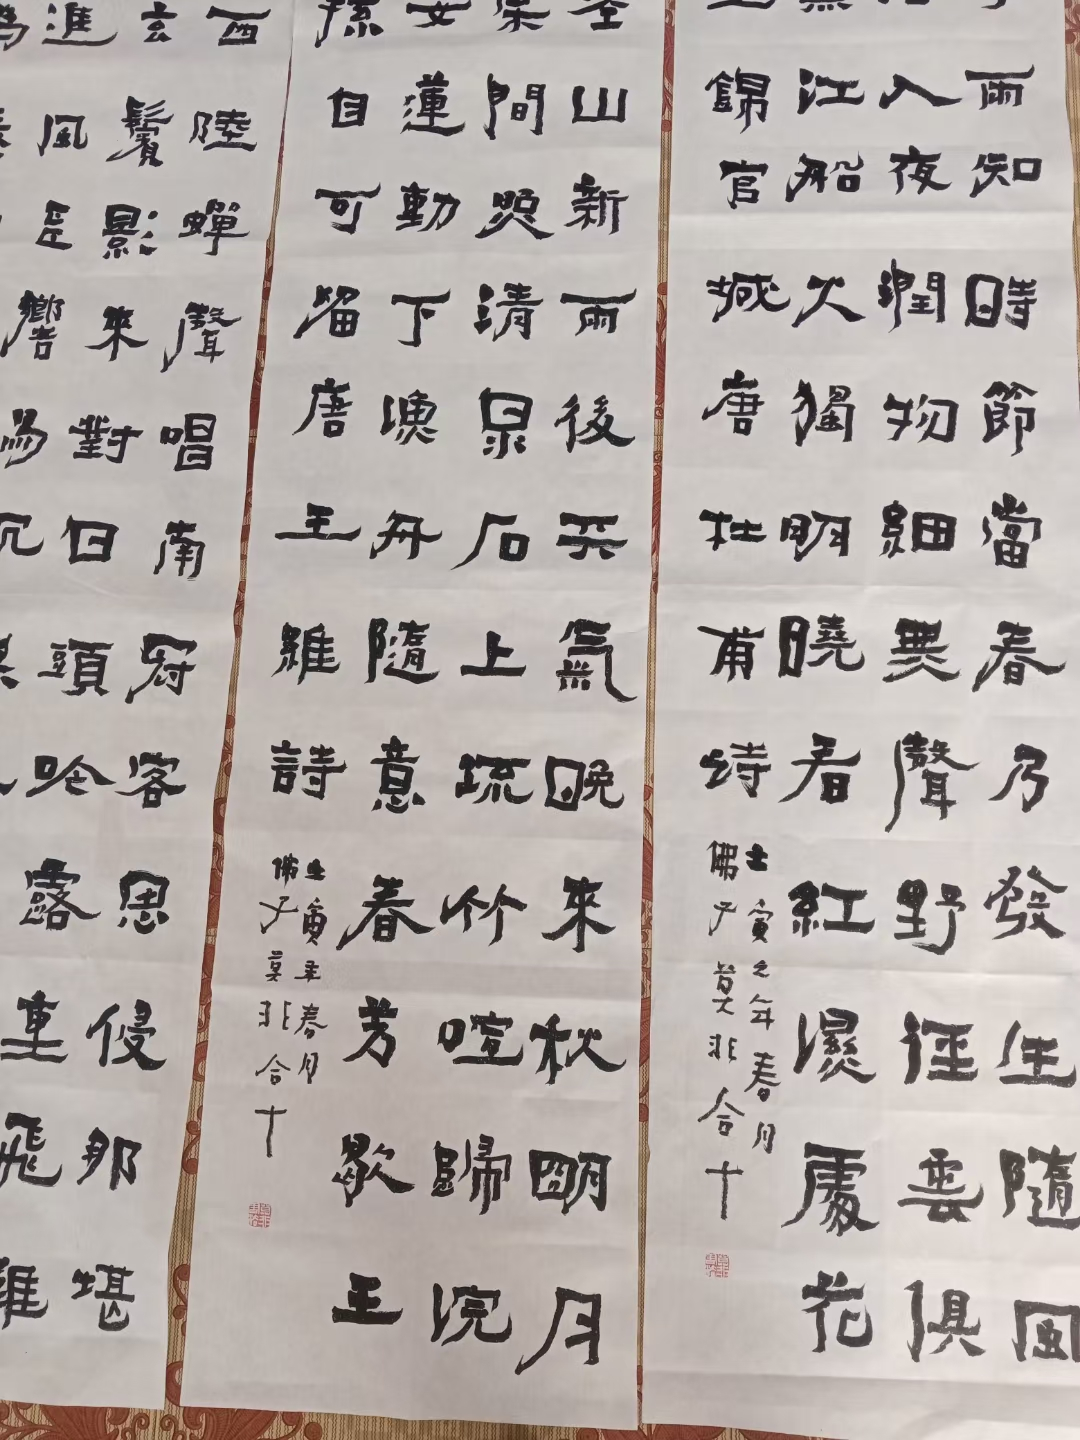 雨知時節當春乃發生隨風
入夜潤物細無聲野徑雲俱
黑江船火獨明曉看紅濕處花
錦官城唐杜甫詩
壬寅之年春月
佛子莫非合十
空山新雨後天氣晚來秋明月
間照清泉石上疏竹喧歸浣
女蓮動下漁舟隨意春芳歇王
孫自可留唐王維詩
壬寅年春月
佛子莫非合十
西陸蟬聲唱南冠客思侵那堪
玄鬢影來對白頭吟露重飛難
進風多響易沉